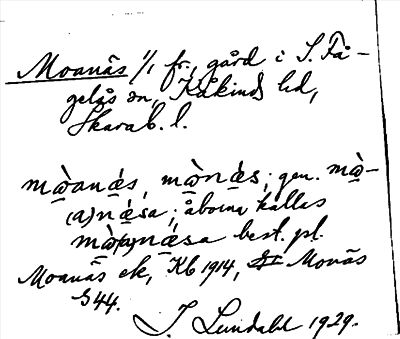 Moanäs 1/1 fr., gård i S. Få-
gelås sn, Kåkinds hd,
Skarab. l.
mὼanǽs, mὼnǽs; gen. mὼ-
(a)nǽsa; åborna kallas
mὼ(a)nǽsa best. pl.
Moanäs ek, Kb 1914, Monäs
S 44.
J. Lundahl 1929.